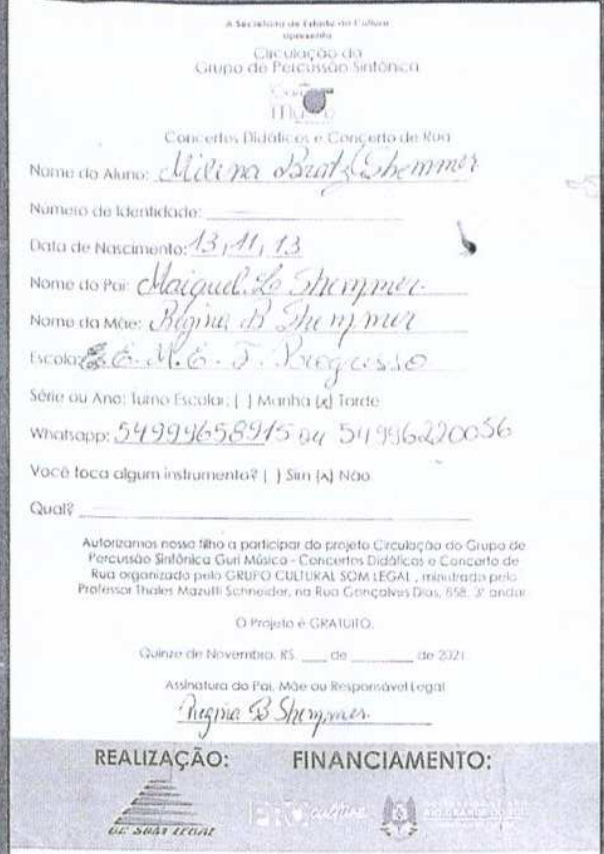 A Secretaria de Estado da Cultura
apresenta
Circulação do
Grupo de Percussão Sinfônica
Concertos Didáticos e Concerto de Rua
Nome do Aluno: Milina Bratz Shemmer
Número de Identidade:
Data de Nascimento: 13, 11, 13
Nome do Pai: Maiquel. L Shemmer.
Nome da Mãe: Regina B Shemmer
Escola: E. M. E. F. Progresso
Série ou Ano: Turno Escolar: [ ] Manhã [x] Tarde
Whatsapp: 54999658915 ou 54996220056
Você toca algum instrumento? [ ] Sim [x] Não
Qual?
Autorizamos nosso filho a participar do projeto Circulação do Grupo de
Percussão Sinfônica Guri Músico - Concertos Didáticos e Concerto de
Rua organizado pelo GRUPO CULTURAL SOM LEGAL , ministrado pelo
Professor Thales Mazutti Schneider, na Rua Gonçalves Dias, 858, 3º andar
O Projeto é GRATUITO.
Quinze de Novembro, RS, ___ de ______ de 2021
Assinatura do Pai, Mãe ou Responsável Legal
Regina B Shemmer.
REALIZAÇÃO: FINANCIAMENTO:
GC SOM LEGAL